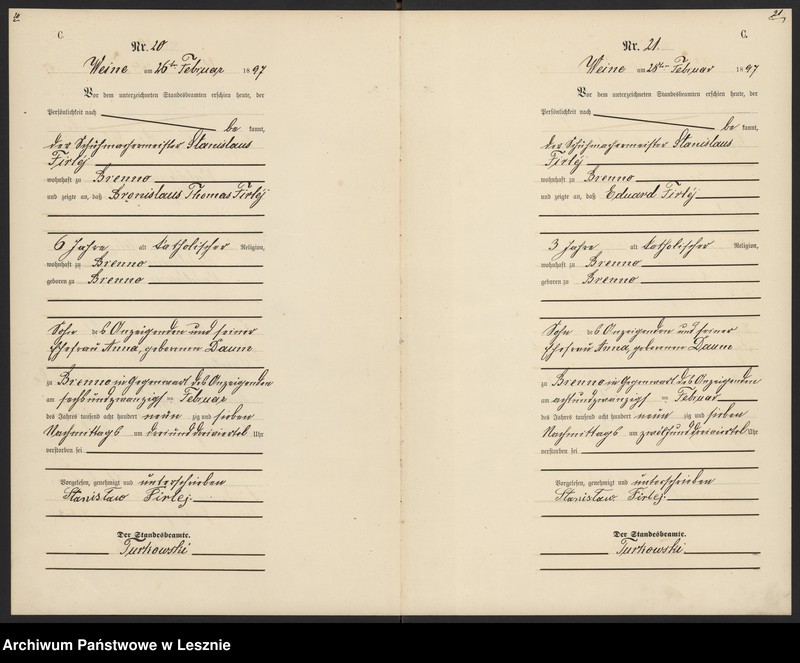 C.
Nr. 20
Weine am 26ten Februar 1897
Vor dem unterzeichneten Standesbeamten erschien heute, der
Persönlichkeit nach
be kannt,
der Schuhmachermeister Stanislaus
Firlej
wohnhaft zu Brenno
und zeigte an, daß Bronislaus Thomas Firlej
6 Jahre alt katholischer Religion,
wohnhaft zu Brenno
geboren zu Brenno
Sohn des Anzeigenden und seiner
Ehefrau Anna, geborenen Daum
zu Brenno in Gegenwart des Anzeigenden
am sechsundzwanzigsten Februar
des Jahres tausend acht hundert neun zig und sieben
Nachmittags um drei und dreiviertel Uhr
verstorben sei
Vorgelesen, genehmigt und unterschrieben
Stanisław Firlej
Der Standesbeamte.
Turkowski
21
C.
Nr. 21.
Weine am 28ten Februar 1897
Vor dem unterzeichneten Standesbeamten erschien heute, der
Persönlichkeit nach
be kannt,
der Schuhmachermeister Stanislaus
Firlej
wohnhaft zu Brenno
und zeigte an, daß Eduard Firlej
3 Jahre alt katholischer Religion,
wohnhaft zu Brenno
geboren zu Brenno
Sohn des Anzeigenden und seiner
Ehefrau Anna, geborenen Daum
zu Brenno in Gegenwart des Anzeigenden
am achtundzwanzigsten Februar
des Jahres tausend acht hundert neun zig und sieben
Nachmittags um zwölfunddreiviertel Uhr
verstorben sei
Vorgelesen, genehmigt und unterschrieben
Stanisław Firlej
Der Standesbeamte.
Turkowski
Archiwum Państwowe w Lesznie